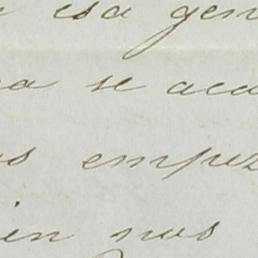 esa gen
a se aca
os empez
in nos